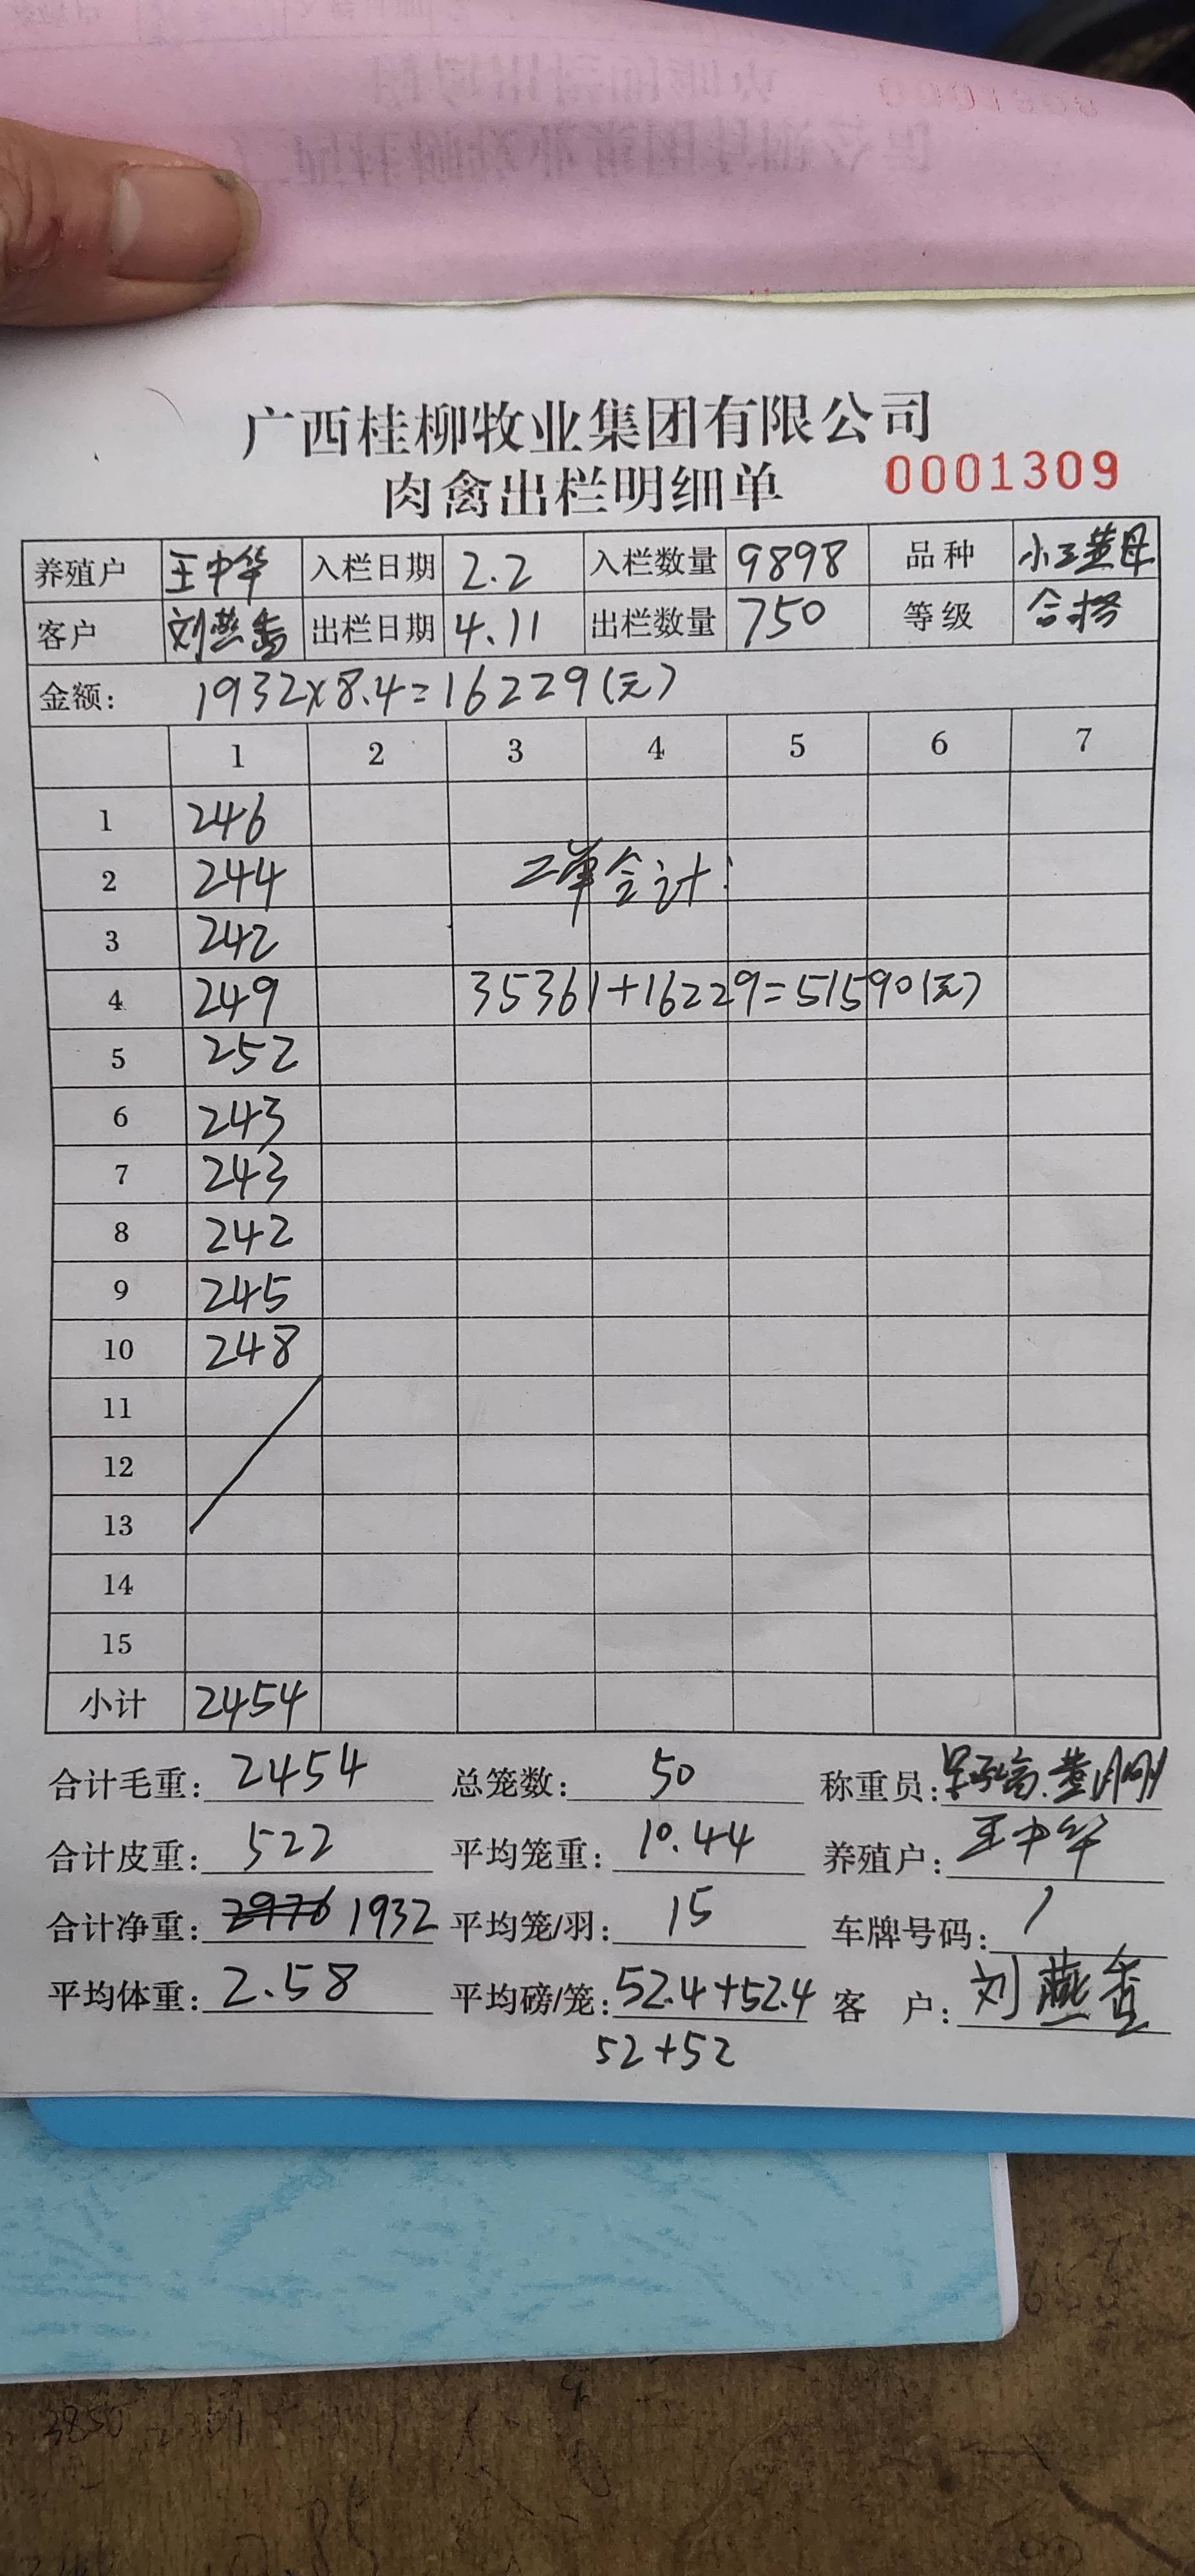 广西桂柳牧业集团有限公司
肉禽出栏明细单 0001309
养殖户 王中华 入栏日期 2.2 入栏数量 9898 品种
客户 刘燕香 出栏日期 4.11 出栏数量 750 等级 合格
金额: 1932×8.4=16229(元)
1 2 3 4 5 6 7
1 246
2 244 二单合计:
3 242
4 249 35361+16229=51590(元)
5 252
6 243
7 243
8 242
9 245
10 248
11
12
13
14
15
小计 2454
合计毛重: 2454 总笼数: 50 称重员:
合计皮重: 522 平均笼重: 10.44 养殖户: 王中华
合计净重: 2976 1932 平均笼/羽: 15 车牌号码: /
平均体重: 2.58 平均磅/笼: 52.4+52.4 客 户: 刘燕香
52+52